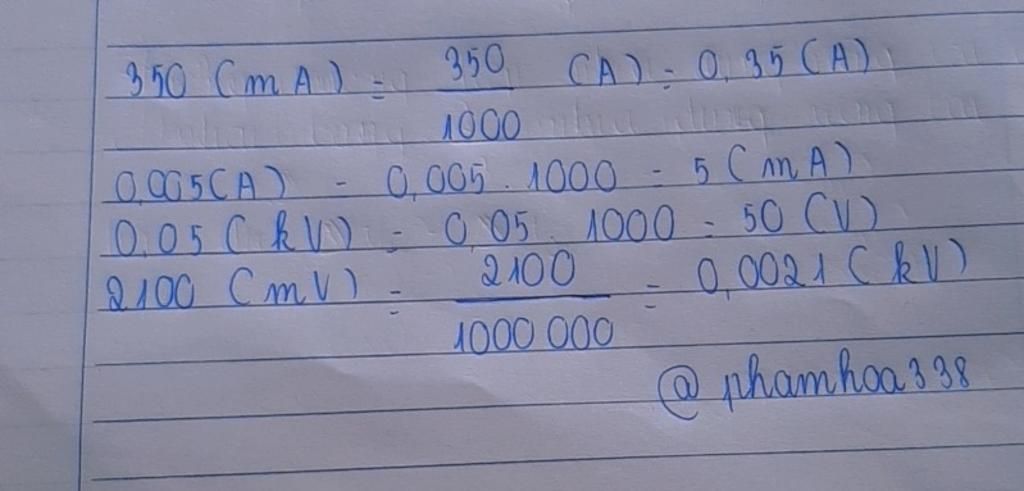 350 (mA) = 350/1000 (A) = 0,35 (A)
0,005(A) = 0,005 . 1000 = 5 (mA)
0,05 (kV) = 0,05 . 1000 = 50 (V)
2100 (mV) = 2100/1000 000 = 0,0021 (kV)
@phamhoa338